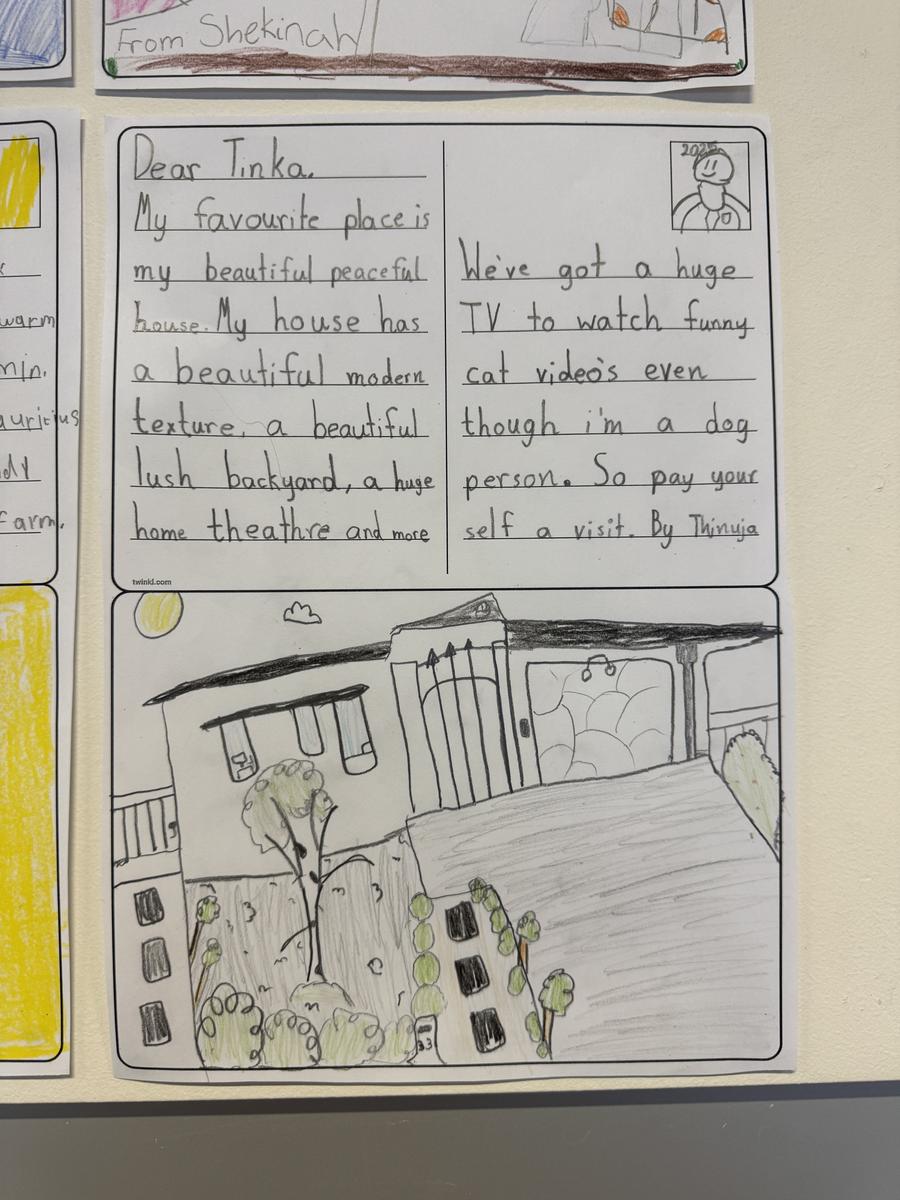 From Shekinah
warm
min.
farm.
Dear Tinka.
My favourite place is
my beautiful peaceful
house. My house has
a beautiful modern
texture, a beautiful
lush backyard, a huge
home theathre and more
twinkl.com
2025
We've got a huge
TV to watch funny
cat video's even
though i'm a dog
person. So pay your
self a visit. By Thinuja
33